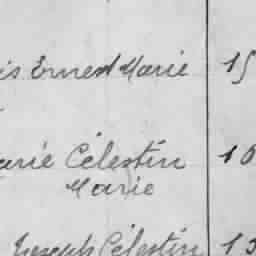 is Ernest Marie 15
arie Célestin 10
Marie
Joseph Célestin 13